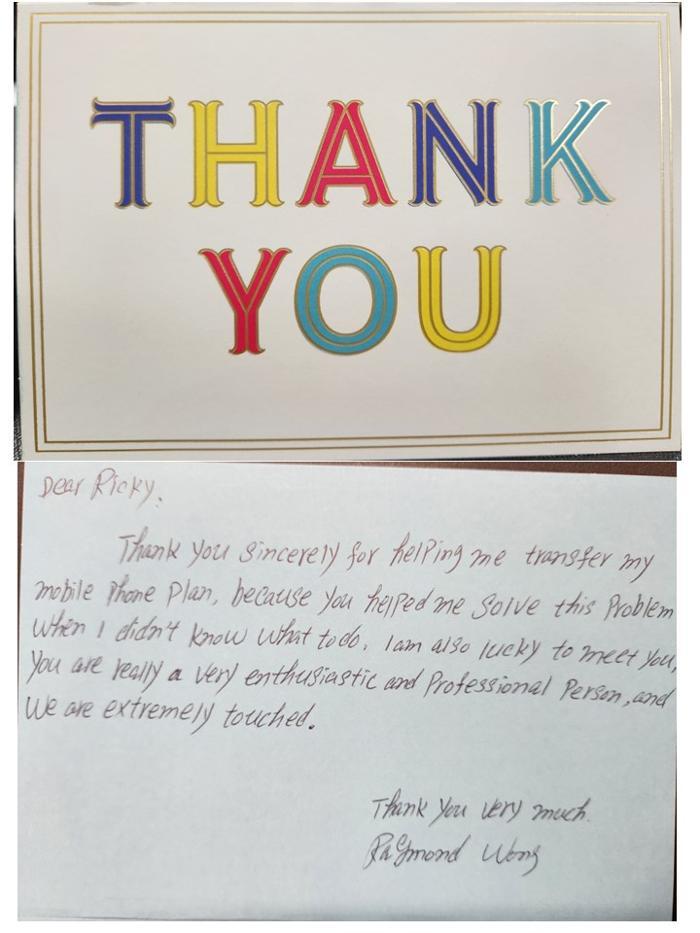 THANK
YOU
Dear Ricky.
Thank you sincerely for helping me transfer my
mobile Phone Plan, because you helped me solve this Problem
When I didn't know what to do. I am also lucky to meet you,
You are really a very enthusiastic and Professional Person, and
We are extremely touched.
Thank you very much.
Raymond Wong